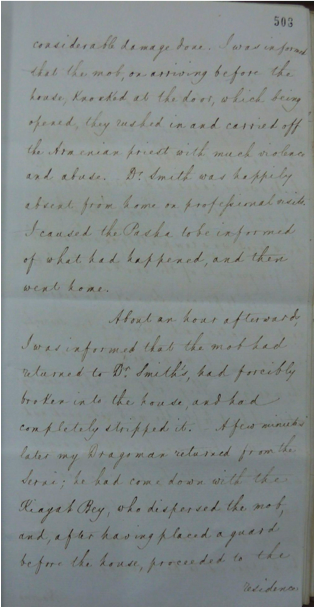 503
considerable damage done. I was informed
that the mob, on arriving before the
house, knocked at the door, which being
opened, they rushed in and carried off
the Armenian priest with much violence
and abuse. Dr. Smith was happily
absent from home on professional visits.
I caused the Pasha to be informed
of what had happened, and then
went home.
About an hour afterwards,
I was informed that the mob had
returned to Dr. Smith's, had forcibly
broken into the house, and had
completely stripped it. A few minutes
later my Dragoman returned from the
Serai; he had come down with the
Keayah Bey, who dispersed the mob,
and, after having placed a guard
before the house, proceeded to the
residence